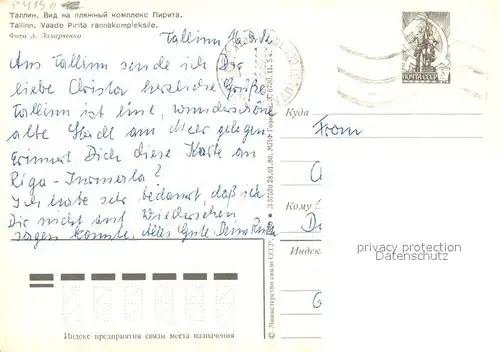 Таллин. Вид на пляжный комплекс Пирита.
Tallinn. Vaade Pirita rannakompleksile.
Фото А. Захарченко
Tallinn
Aus Tallinn sende ich Dir
liebe Christa herzliche Grüße
Tallinn ist eine wunderschöne
alte Stadt am Meer gelegen
Erinnert Dich diese Karte an
Riga-
Ich habe sehr bedauert, daß ich
Dir nicht auf Wiedersehen
sagen konnte. Alles Gute Deine
ПОЧТА СССР
Куда
From
Кому
Индекс
privacy protection
watermark
Индекс предприятия связи места назначения
© Министерство связи СССР,
28.01.80.